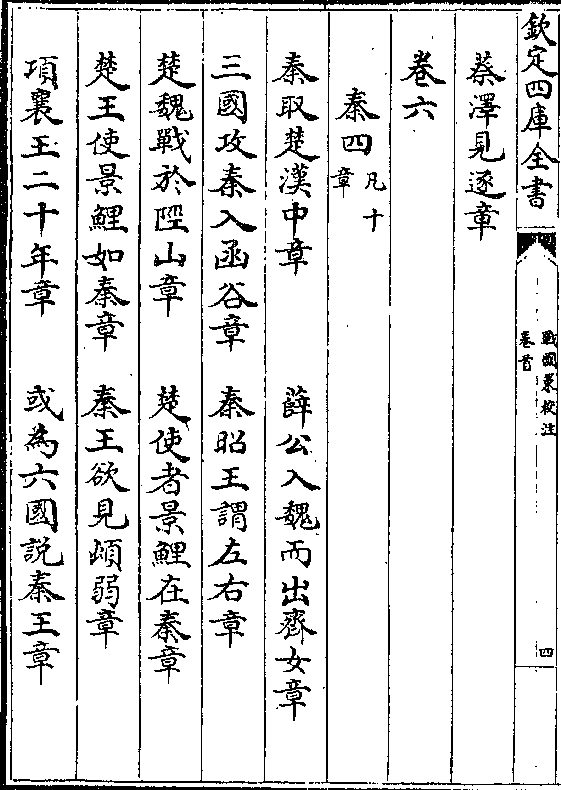 欽定四庫全書
戰國策校注
卷首
四
蔡澤見逐章
卷六
秦四凡十章
秦取楚漢中章　薛公入魏而出齊女章
三國攻秦入函谷章　秦昭王謂左右章
楚魏戰於陘山章　楚使者景鯉在秦章
楚王使景鯉如秦章　秦王欲見頓弱章
項襄王二十年章　或為六國説秦王章